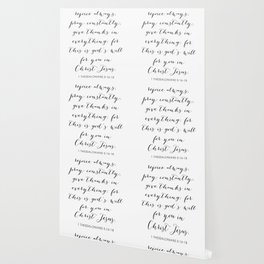 rejoice always,
pray constantly,
give thanks in
everything; for
this is god's will
for you in
Christ Jesus.
1 THESSALONIANS 5:16-18
rejoice always,
pray constantly,
give thanks in
everything; for
this is god's will
for you in
Christ Jesus.
1 THESSALONIANS 5:16-18
rejoice always,
rejoice always,
pray constantly,
give thanks in
everything; for
this is god's will
for you in
Christ Jesus.
1 THESSALONIANS 5:16-18
rejoice always,
pray constantly,
give thanks in
everything; for
this is god's will
for you in
Christ Jesus.
1 THESSALONIANS 5:16-18
rejoice always,